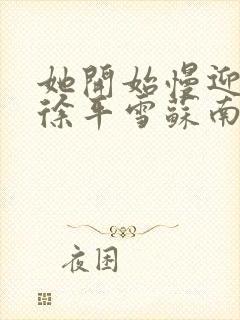 她開始慢迎
徐平雪蘇南
夜困